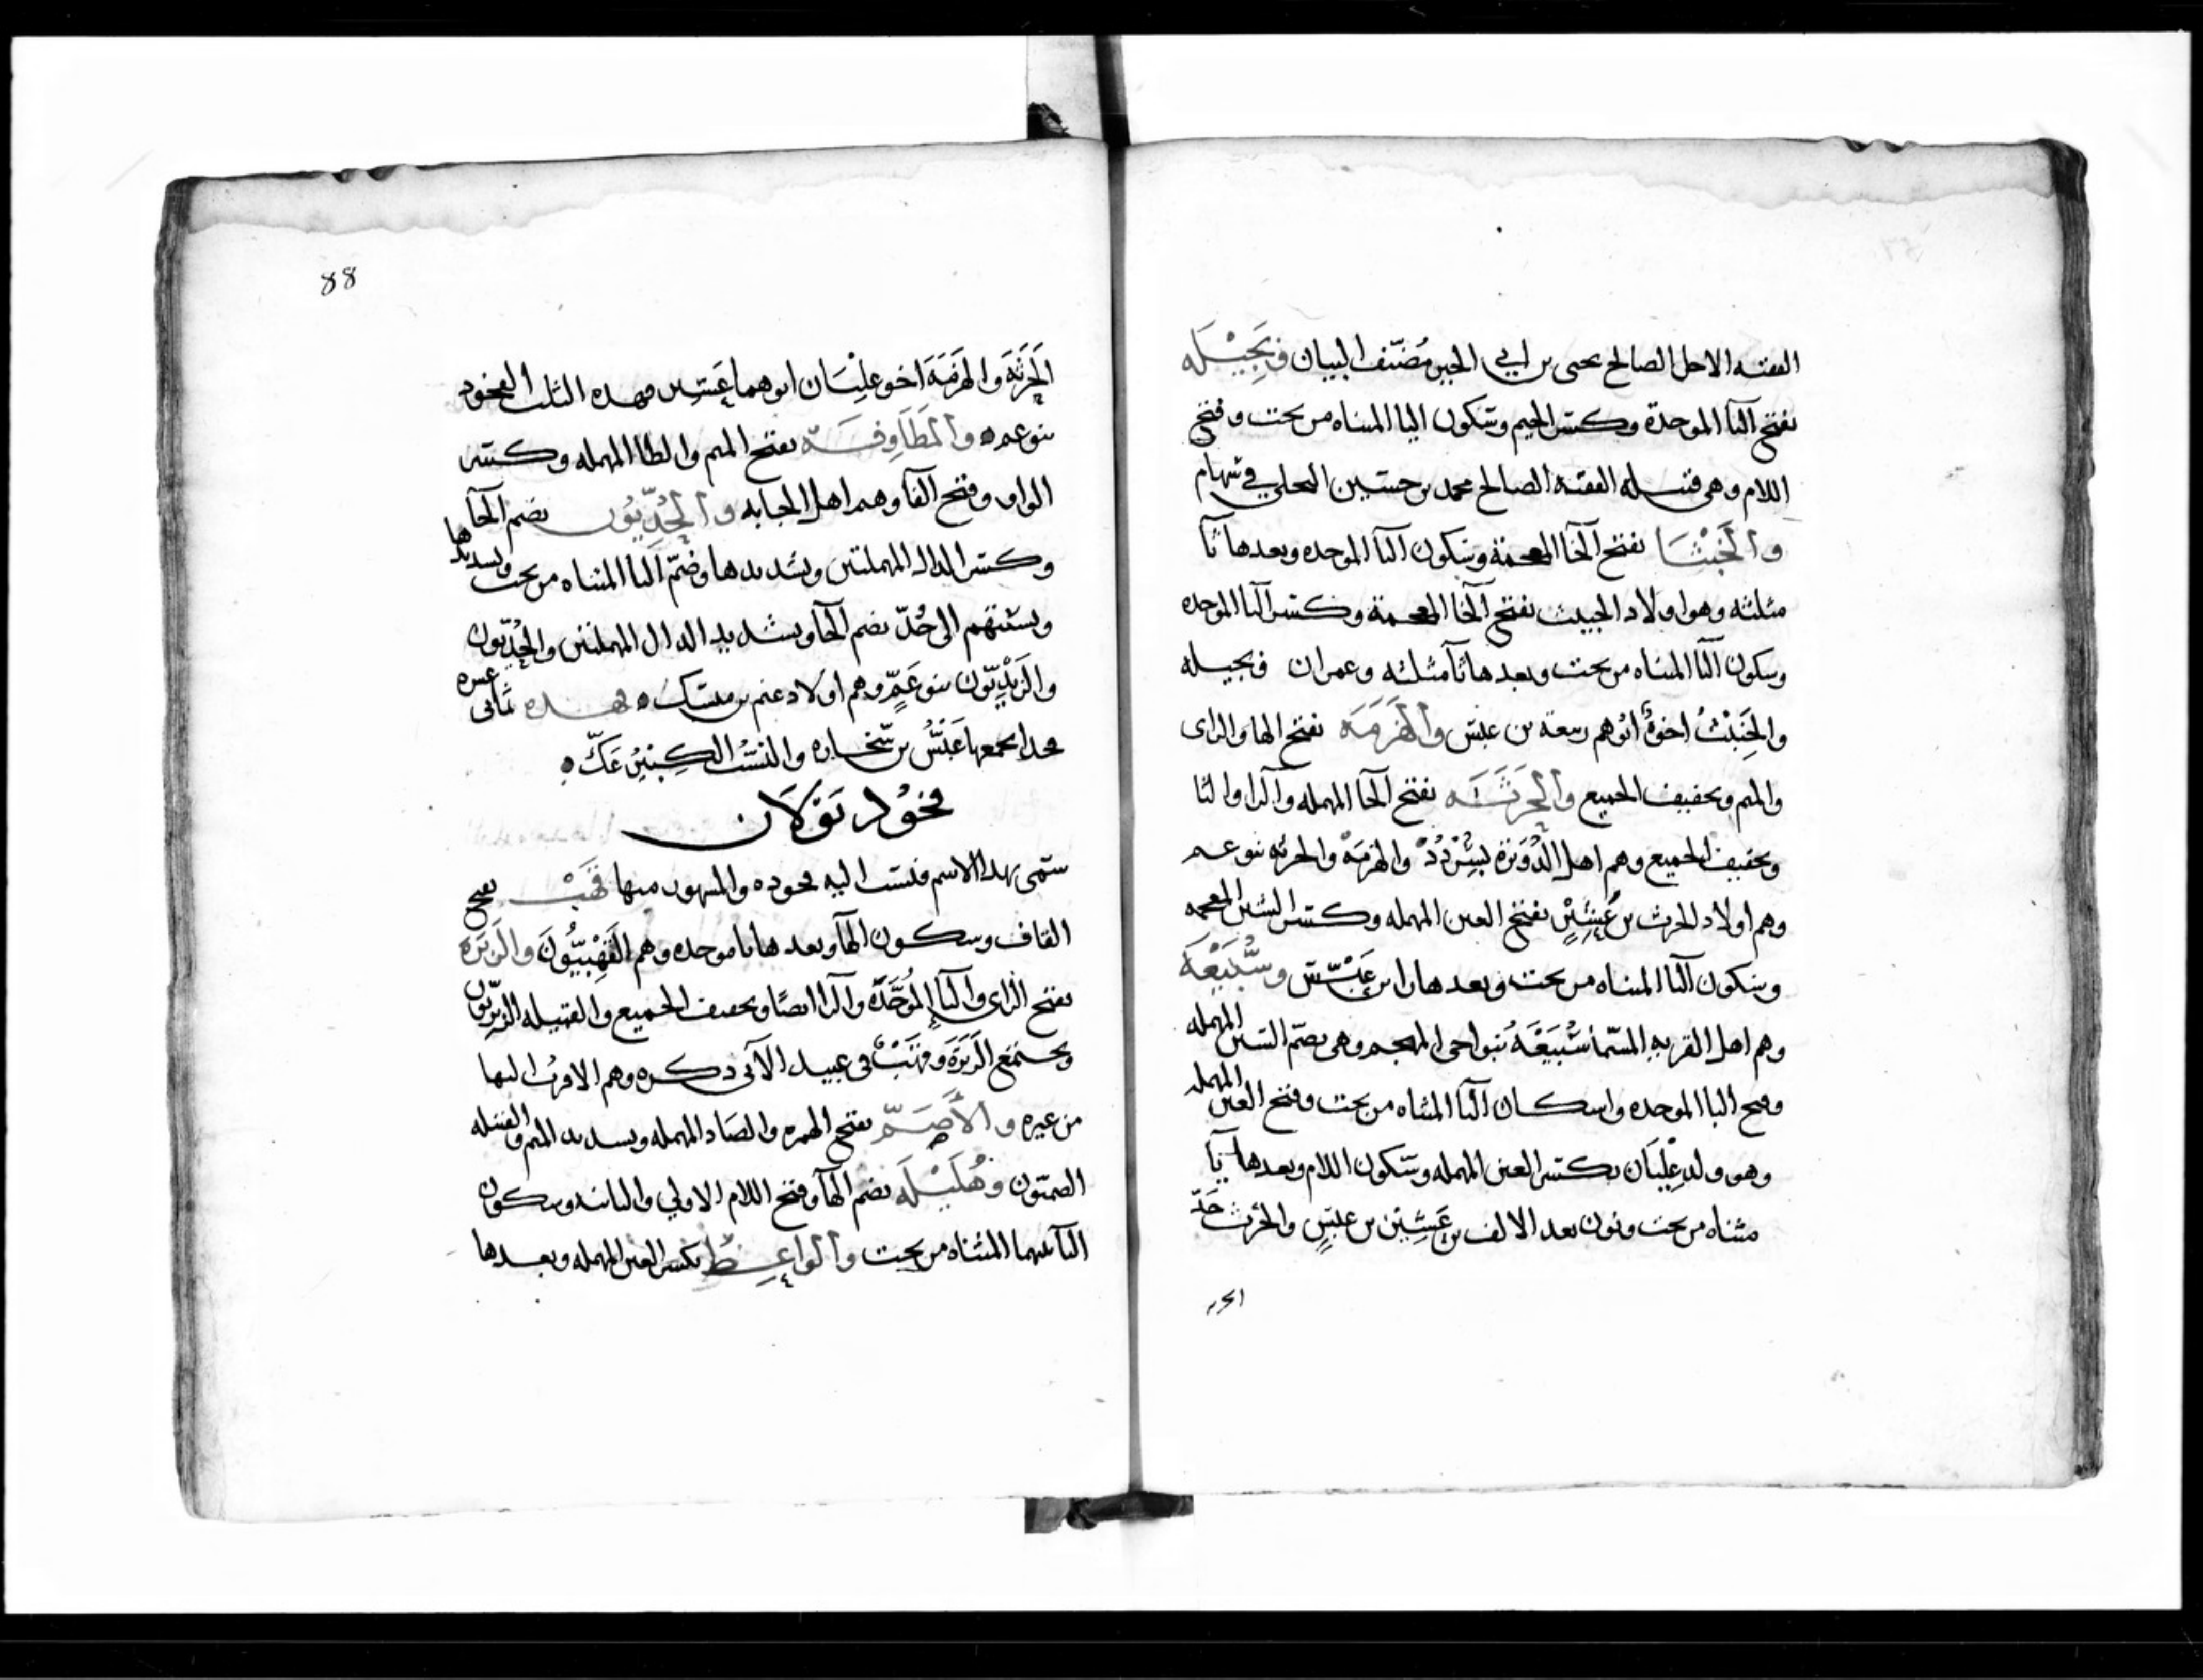 الفقيه الاجل الصالح يحيى بن ابي الخير مُصَنّف البيان وبَجِيْلَه
بفتح البآ الموحدة وكسر الجيم وسكون اليا المثناه من تحت وفتح
اللام وهي قبيله الفقيه الصالح محمد بن حسين البجلي في سهام
والخَبْثَا بفتح الخآ المعجمة وسكون البآ الموحده وبعدها ثآ
مثلثه وهو اولاد الخبيث بفتح الخآ المعجمة وكسر البآ الموحده
وسكون اليآ المثناه من تحت وبعدها ثآ مثلثه وعمران وبجيله
والخَبِيْثُ اخوةٌ ابوهم ربيعة بن عبس والهَزَمَه بفتح الها والزاى
والميم وتخفيف الجميع والحَرَثَه بفتح الحآ المهمله والرا والثا
وتخفيف الجميع وهم اهل وا‌لهزمَهْ والحرثه بنو عم
وهم اولاد الحرث بن عَشِيْرٍ بفتح العين المهمله وكسر الشين المعجمه
وسكون اليآ المثناه من تحت وبعدها را بن عَبْس وسُبَيْعَه
وهم اهل القريه المسمّا سُبَيْعَة بنواحى المهجم وهى بضمّ السين المهمله
وفتح البا الموحده واسكان اليآ المثناه من تحت وفتح العين المهمله
وهو ولد عِلْيَان بكسر العين المهمله وسكون اللام وبعدها يآ
مثناه من تحت ونون بعد الالف بن عَشِيْر بن عبسٍ والحرث جَدّ
الحرثه
88
الحَرَثَه والهَزَمَة اخو عِلْيَان ابوهما عَشِير فهذه الثلث الفخوذ
بنو عم والمَطَاوِفَه بفتح الميم والطا المهمله وكسر
الواو وفتح الفآ وهم اهل والحُدِّيّون بضم الحآ
وكسر الدال المهملتين وتشديدها وضمّ اليآ المثناه من تحت وتشديدها
ونسبتهم الى حُدّ بضم الحآ وتشديد الدال المهملتين والحُدِّيّون
والزَيْدِيّون بنو عَمٍّ وهم اولاد غنم بن هذه ثمانى عشره
فخذا يجمعها عَبْسُ بن سخاره والنسب الكبير عَكّ
فخوذ بَوْلَان
سمّى بهذا الاسم فنسب اليه فخوذه والمشهور منها قَهْبٌ بفتح
القاف وسكون الهآ وبعدها با موحده وهم القَهْبِيُّونَ والزَبَرَة
بفتح الزاى والبآ الموُحَّدَّه والرا ايضًا وتخفيف الجميع والقبيله الزبريّون
ويجتمع الزَبَرَة وقَهْبٌ فى عبيد الآتى ذكره وهم الاقربُ اليها
من غيره والأَصَمّ بفتح الهمزه والصَاد المهمله وتشديد الميم والقبيله
الصميّون وهُلَيْلَه بضم الهآ وفتح اللام الاولي والثانيه وسكون
اليآ بينهما المثناه من تحت والواعِظ بكسر العين المهمله وبعدها